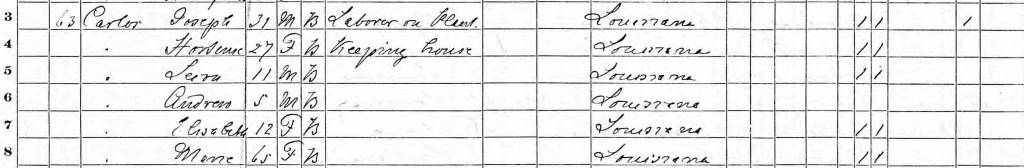 3 63 Carlos Joseph 31 M B Laborer on Plant. Louisiana 1 1 1
4 " Hortense 27 F B Keeping house Louisiana 1 1
5 " 11 M B Louisiana 1 1
6 " Andrew 5 M B Louisiana
7 " Elisabeth 12 F B Louisiana 1 1
8 " Marie 65 F B Louisiana 1 1